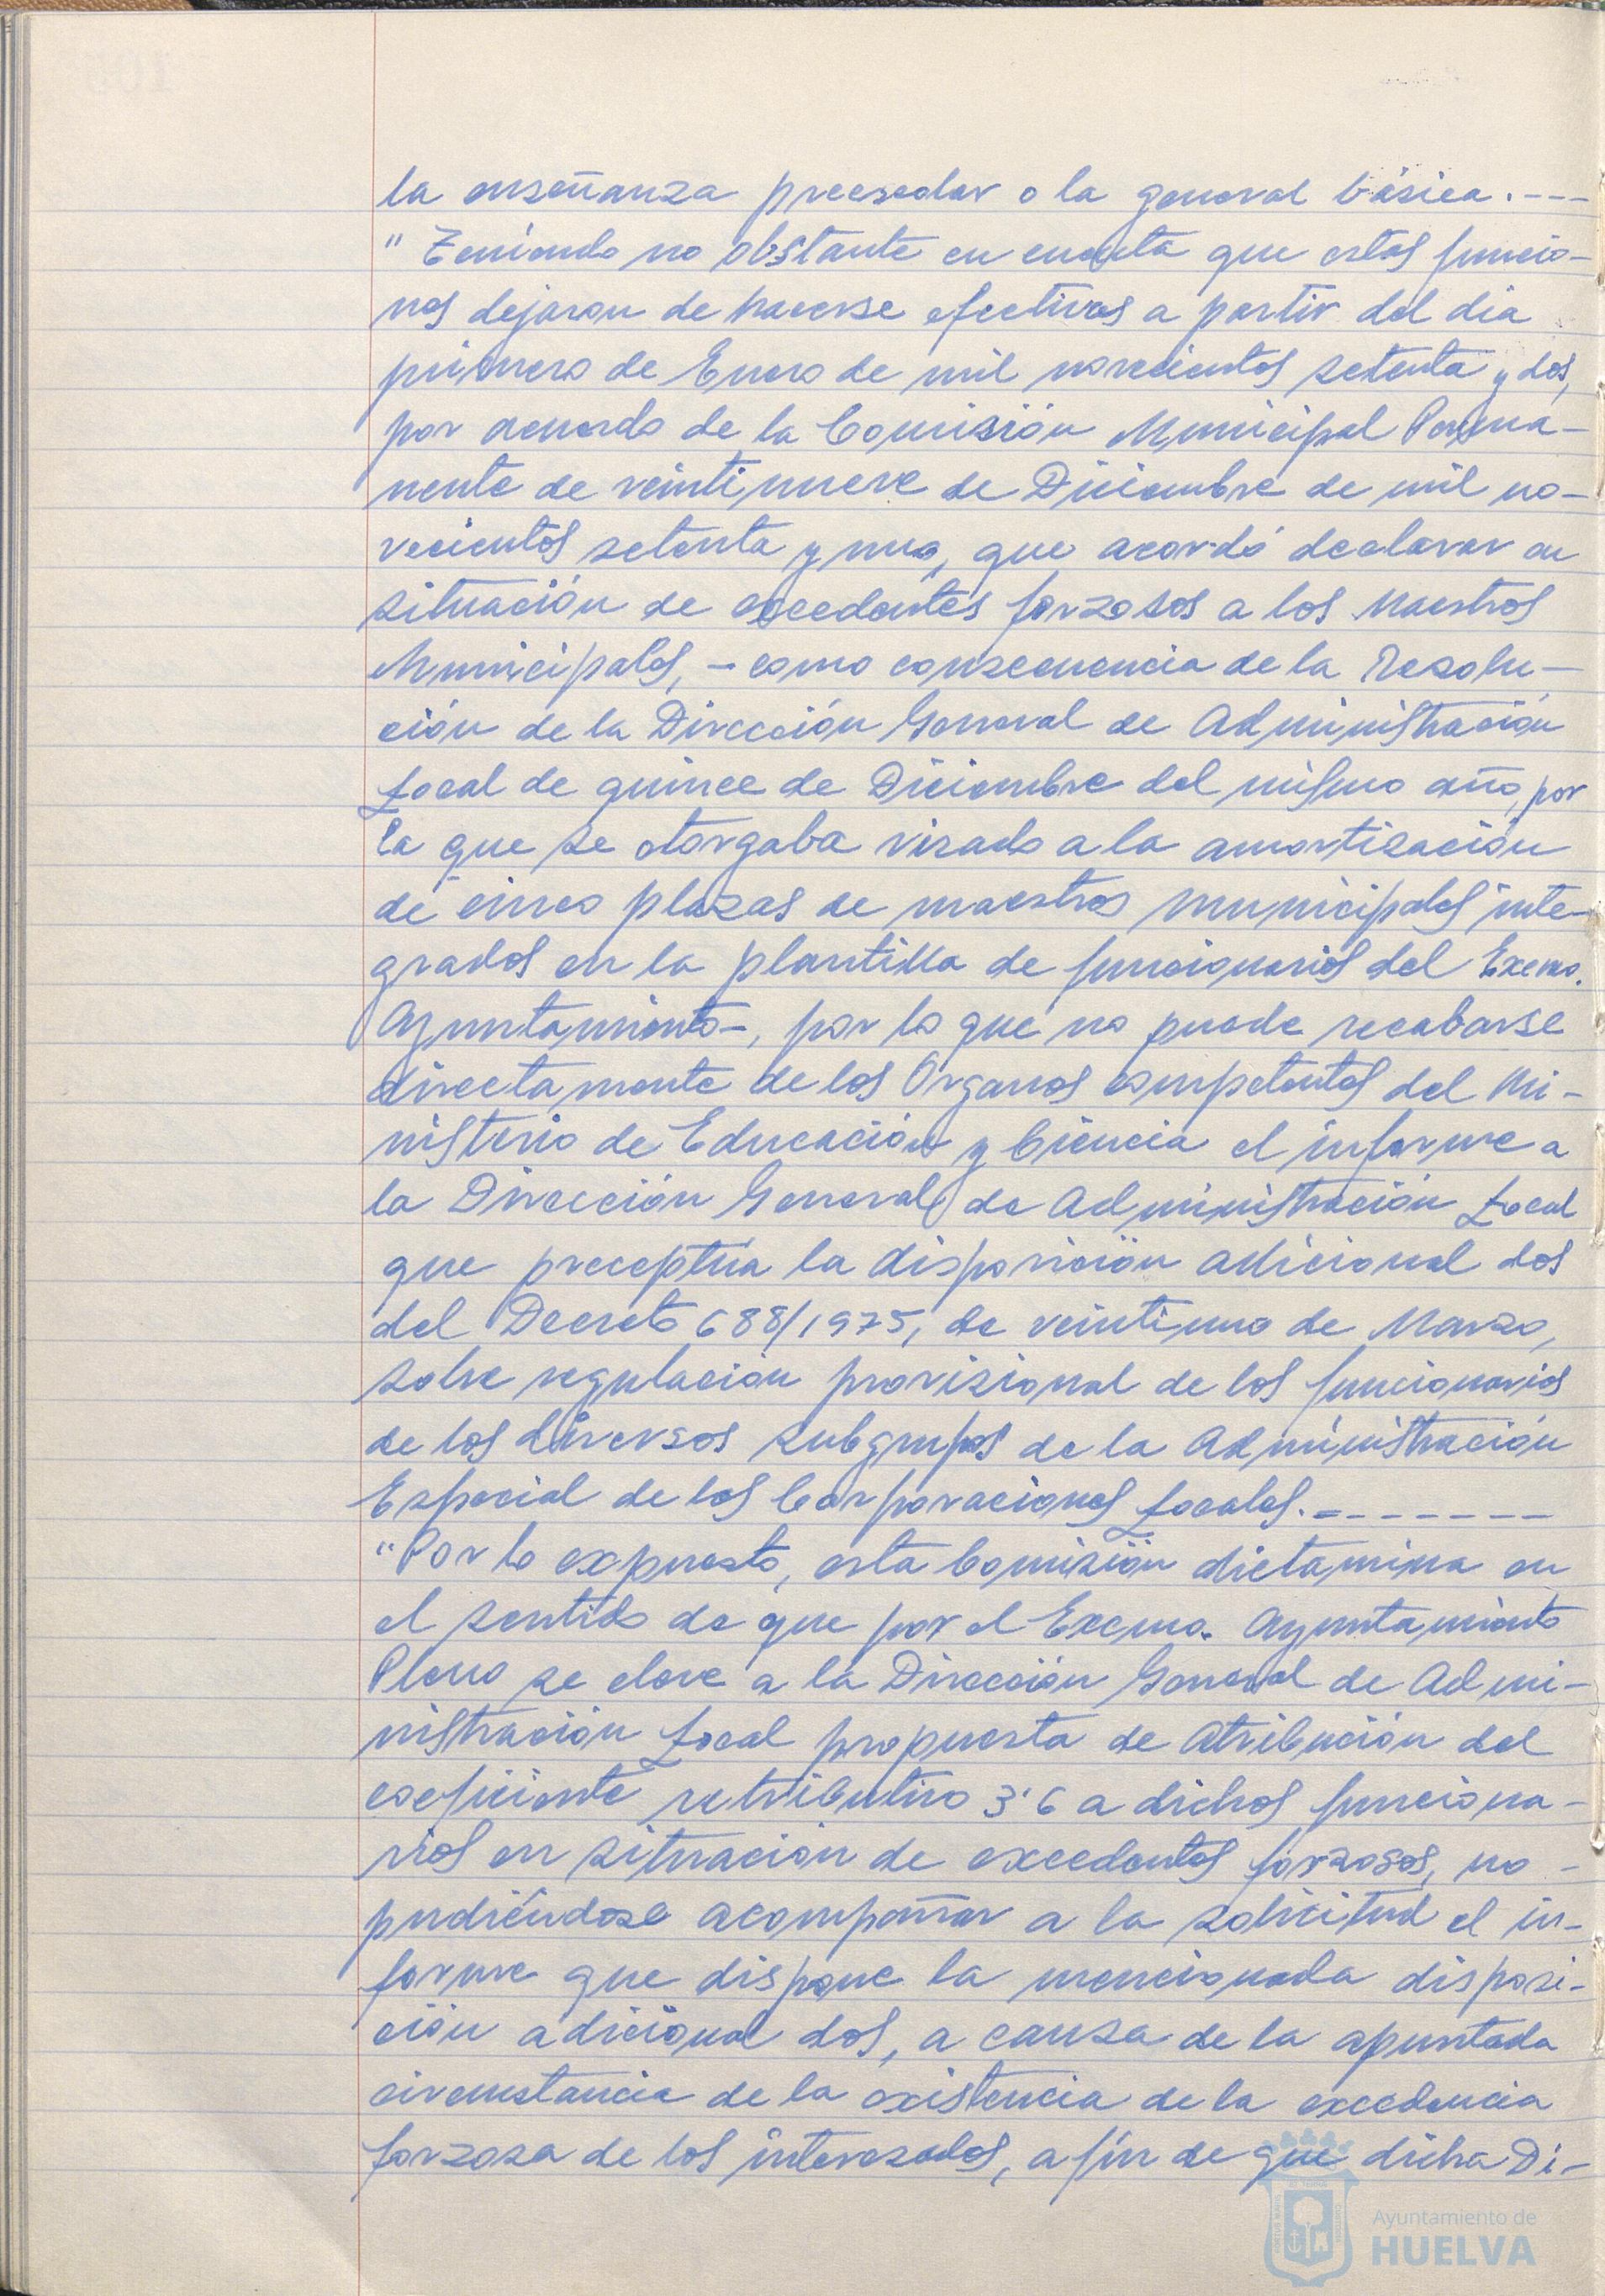 la enseñanza preescolar o la general básica.---
" Teniendo no obstante en cuenta que estas funcio-
nes dejaron de hacerse efectivas a partir del día
primero de Enero de mil novecientos setenta y dos,
por acuerdo de la Comisión Municipal Perma-
nente de veintinueve de Diciembre de mil no-
vecientos setenta y uno, que acordó declarar en
situación de excedentes forzosos a los Maestros
Municipales, - como consecuencia de la Resolu-
ción de la Dirección General de Administración
Local de quince de Diciembre del mismo año, por
la que se otorgaba visado a la amortización
de cinco plazas de maestros municipales inte-
grados en la plantilla de funcionarios del Excmo.
Ayuntamiento-, por lo que no puede recabarse
directamente de los Organos competentes del Mi-
nisterio de Educación y Ciencia el informe a
la Dirección General de Administración Local
que preceptúa la disposición adicional dos
del Decreto 688/1975, de veintiuno de Marzo,
sobre regulación provisional de los funcionarios
de los diversos subgrupos de la Administración
Especial de las Corporaciones Locales.--------
"Por lo expuesto, esta Comisión dictamina en
el sentido de que por el Excmo. Ayuntamiento
Pleno se eleve a la Dirección General de Admi-
nistración Local propuesta de atribución del
coeficiente retributivo 3'6 a dichos funciona-
rios en situación de excedentes forzosos, no -
pudiéndose acompañar a la solicitud el in-
forme que dispone la mencionada disposi-
ción adicional dos, a causa de la apuntada
circunstancia de la existencia de la excedencia
forzosa de los interesados, a fin de que dicha Di-
Ayuntamiento de
HUELVA